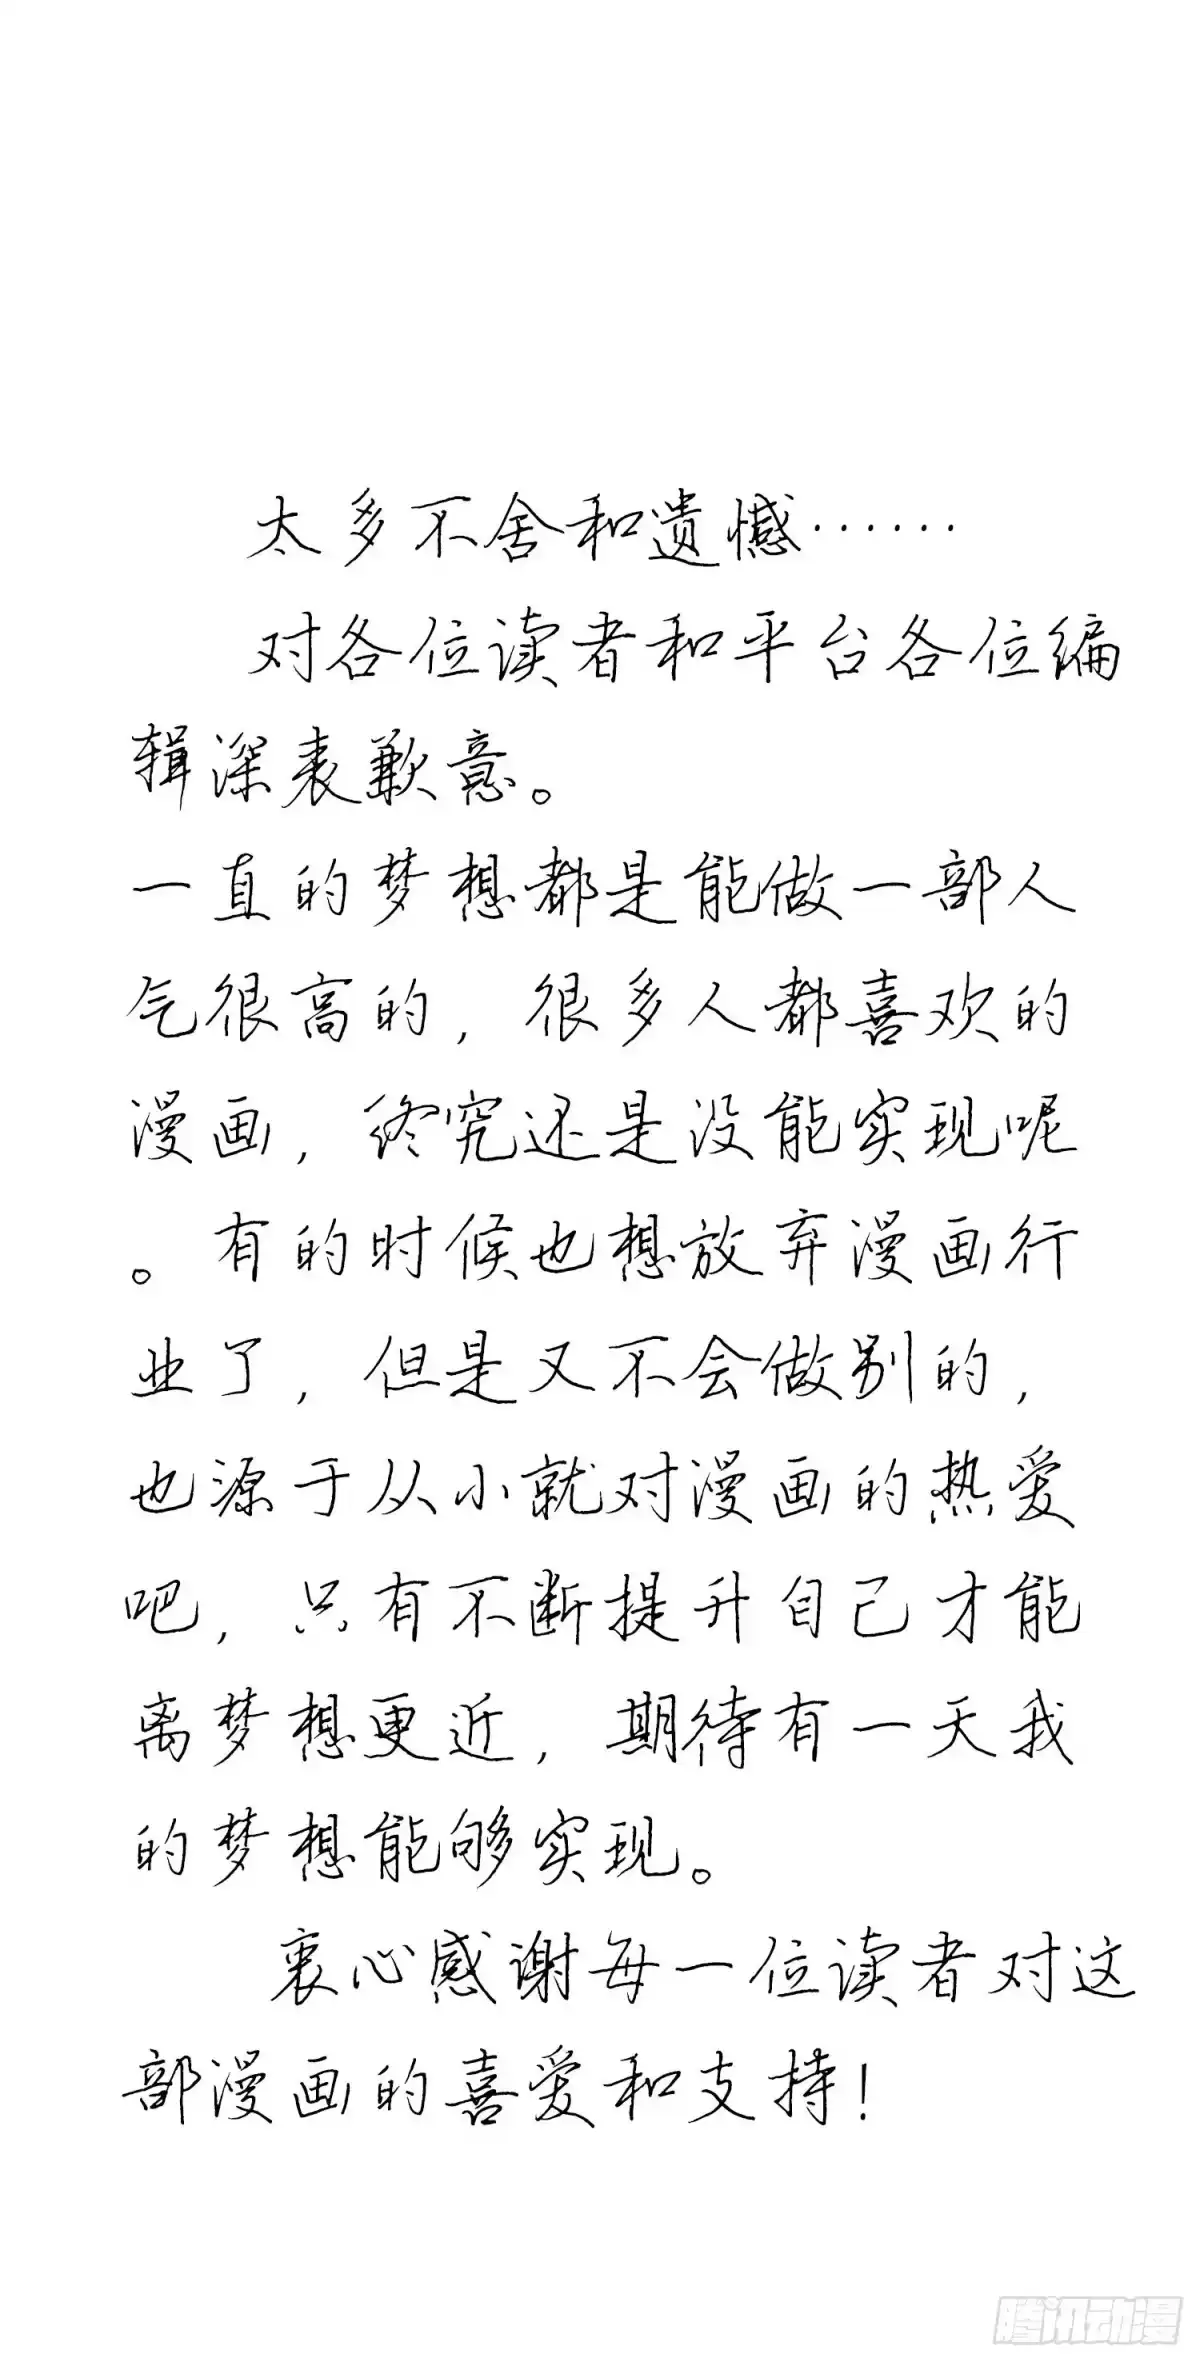 太多不舍和遗憾……
对各位读者和平台各位编
辑深表歉意。
一直的梦想都是能做一部人
气很高的，很多人都喜欢的
漫画，终究还是没能实现呢
。有的时候也想放弃漫画行
业了，但是又不会做别的，
也源于从小就对漫画的热爱
吧，只有不断提升自己才能
离梦想更近，期待有一天我
的梦想能够实现。
衷心感谢每一位读者对这
部漫画的喜爱和支持！
腾讯动漫